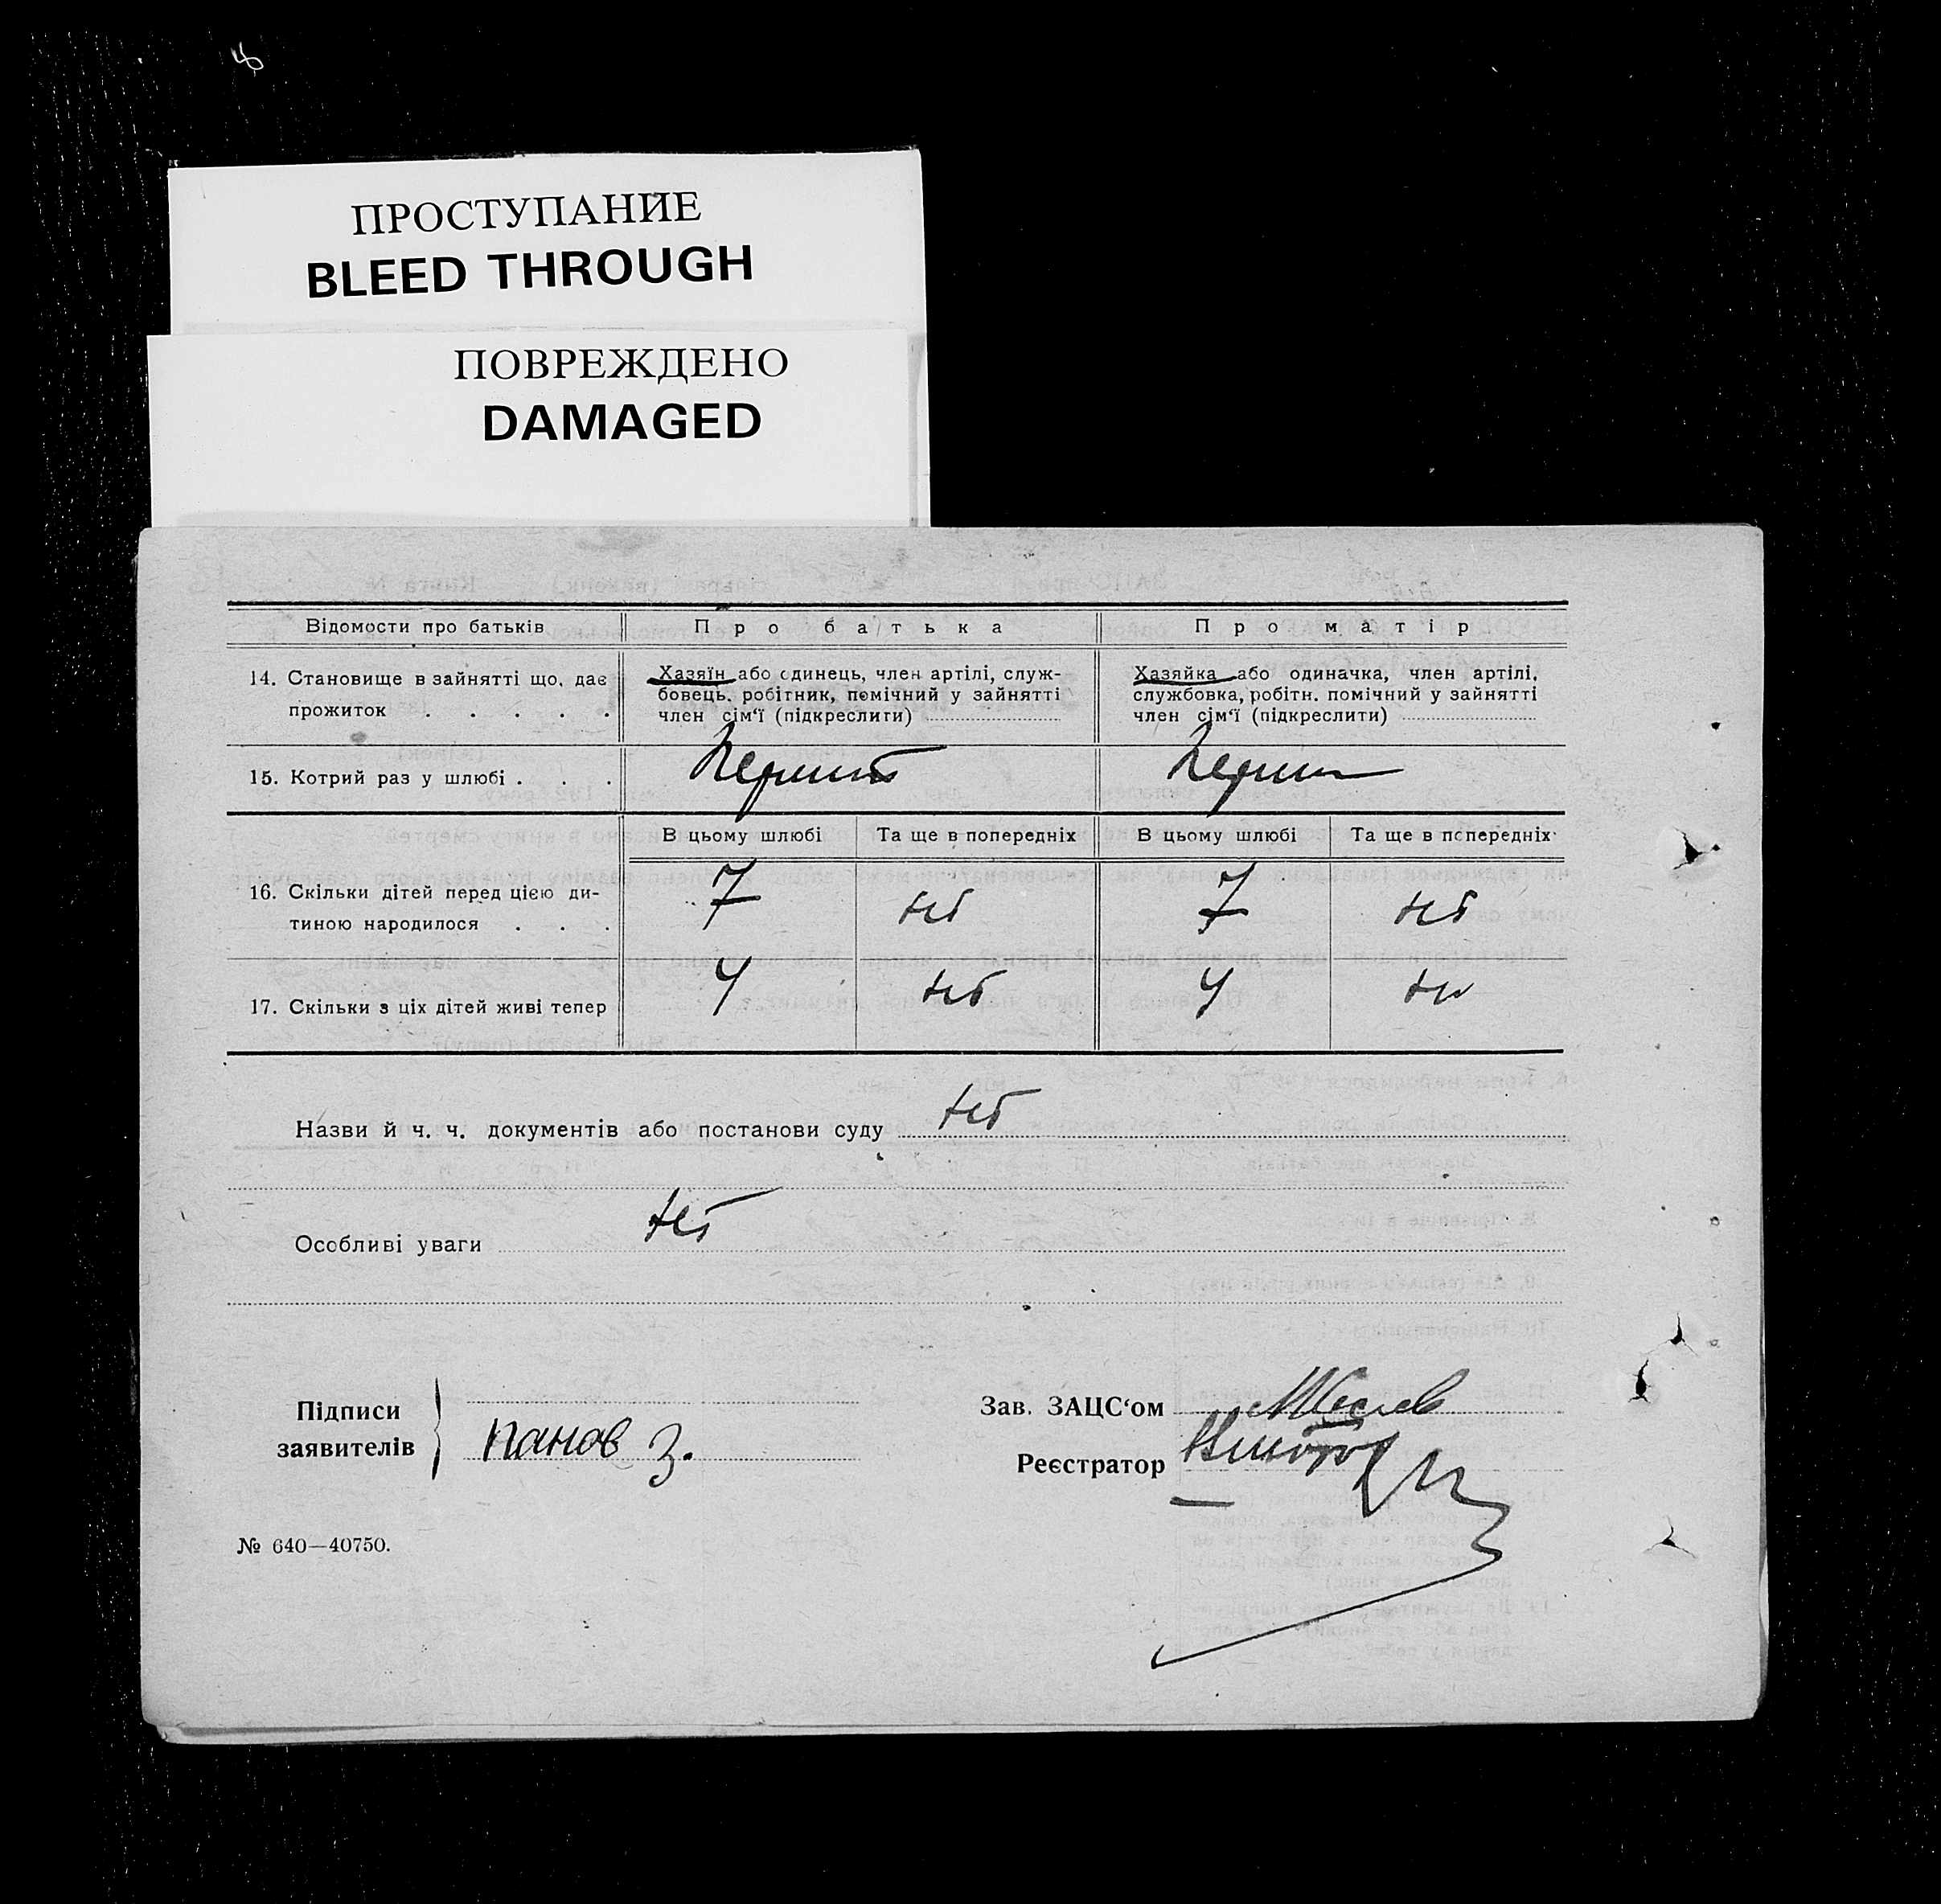 ПРОСТУПАНИЕ
BLEED THROUGH
ПОВРЕЖДЕНО
DAMAGED
Відомости про батьків Про батька Про матір
14. Становище в зайнятті що, дає прожиток . . . . .
Хазяїн або одинець, член артілі, служ-
бовець, робітник, помічний у зайнятті
член сім‘ї (підкреслити)
Хазяйка або одиначка, член артілі,
службовка, робітн. помічний у зайнятті
член сім‘ї (підкреслити)
15. Котрий раз у шлюбі . . .
В цьому шлюбі Та ще в попередніх В цьому шлюбі Та ще в попередніх
16. Скільки дітей перед цією ди-
тиною народилося . . .
7 нет 7 нет
17. Скільки з ціх дітей живі тепер 4 нет 4
Назви й ч. ч. документів або постанови суду нет
Особливі уваги нет
Підписи
заявителів
Панов З.
Зав. ЗАЦС‘ом
Реєстратор
№ 640—40750.